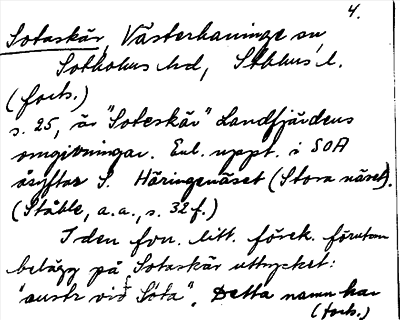 4.
Sotaskär, Västerhaninge sn
Sotholms hd, Sthlms l.
(forts.)
s. 25, är "Soteskär" Landfjärdens
omgivningar. Enl. uppt. i SOA
åsyftar S. Häringenäset (Stora näset).
(Ståhle, a.a., s. 32 f.)
I den fvn. litt. förek. förutom
belägg på Sotaskär uttrycket:
"austr við Sóta". Detta namn har
(forts.)